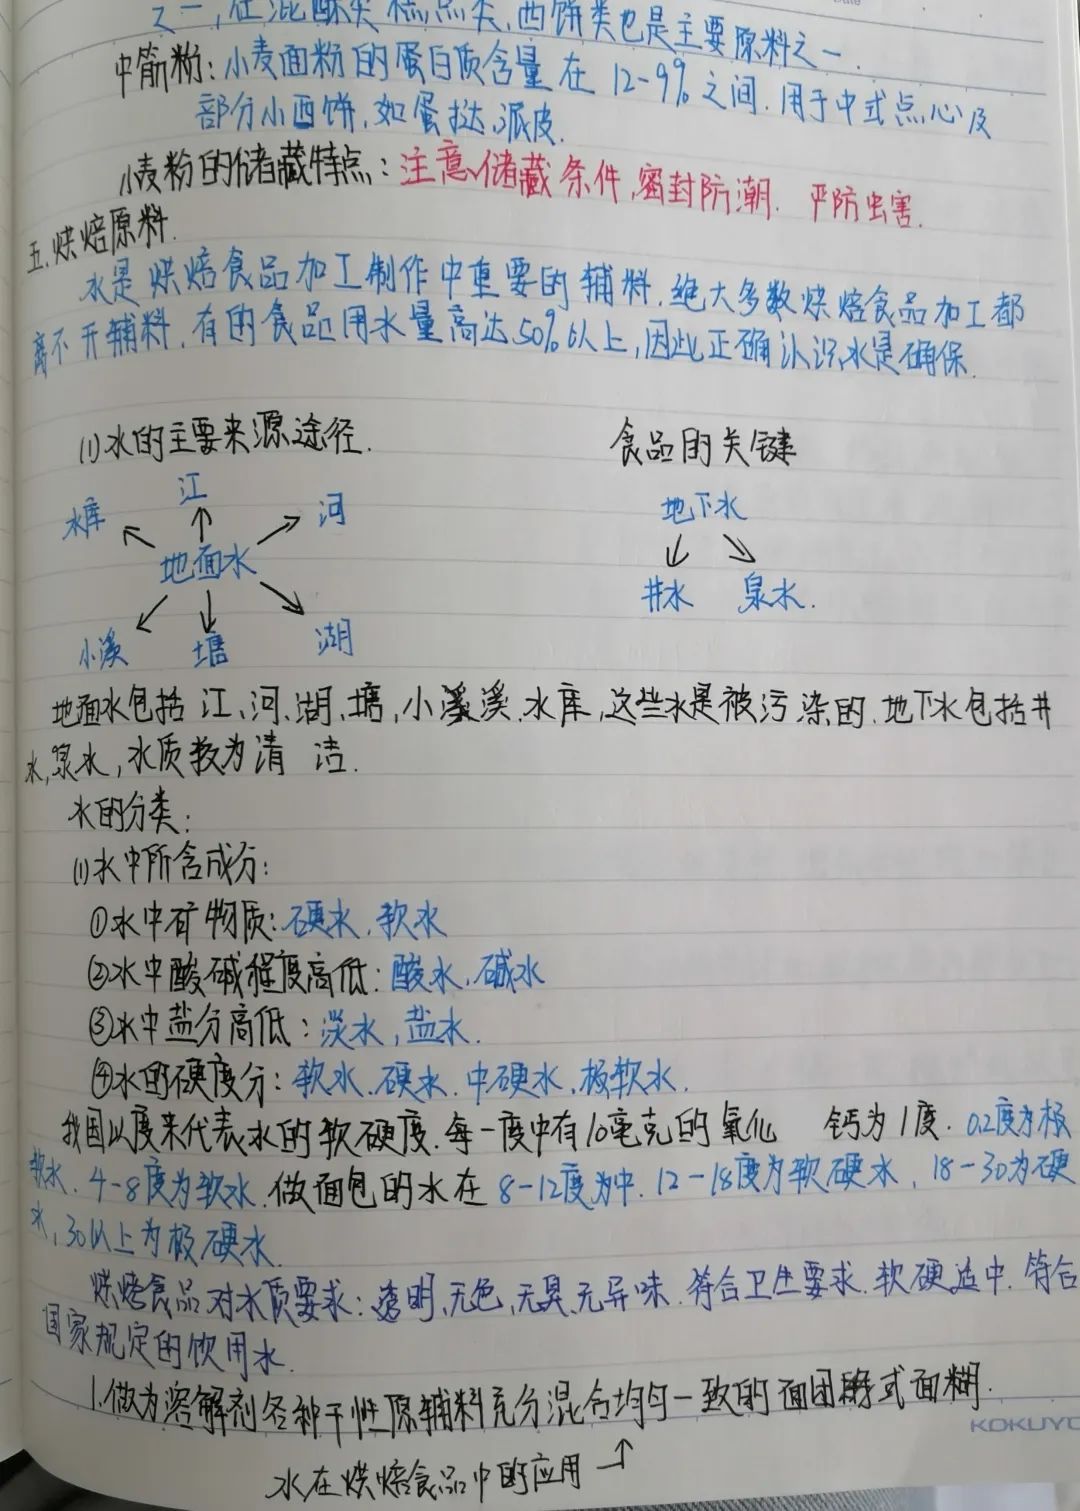 之一,在混酥类 糕点类,西饼类也是主要原料之一.
中筋粉:小麦面粉的蛋白质含量在12-9%之间.用于中式点心及
部分小西饼,如蛋挞,派皮.
小麦粉的储藏特点:注意储藏条件,密封防潮.严防虫害.
五.烘焙原料.
水是烘焙食品加工制作中重要的辅料.绝大多数烘焙食品加工都
离不开辅料.有的食品用水量高达50%以上,因此正确认识水是确保.
(1)水的主要来源途径. 食品的关键
江
水库 河
地面水
小溪 塘 湖
地下水
井水 泉水.
地面水包括江、河、湖、塘,小溪溪.水库,这些水是被污染的.地下水包括井
水,泉水,水质较为清 洁.
水的分类:
(1)水中所含成分:
①水中矿物质:硬水.软水
②水中酸碱程度高低:酸水.碱水
③水中盐分高低:淡水,盐水.
④水的硬度分:软水.硬水.中硬水.极软水.
我国以度来代表水的软硬度.每一度中有10毫克的氧化 钙为1度.02度为极
软水.4-8度为软水.做面包的水在8-12度为中.12-18度为软硬水,18-30为硬
水,30以上为极硬水.
烘焙食品对水质要求:透明,无色,无臭无异味.符合卫生要求.软硬适中.符合
国家规定的饮用水.
1.做为溶解剂各种干性原辅料充分混合均匀一致的面团 式面糊.
水在烘焙食品中的应用
KOKUYO